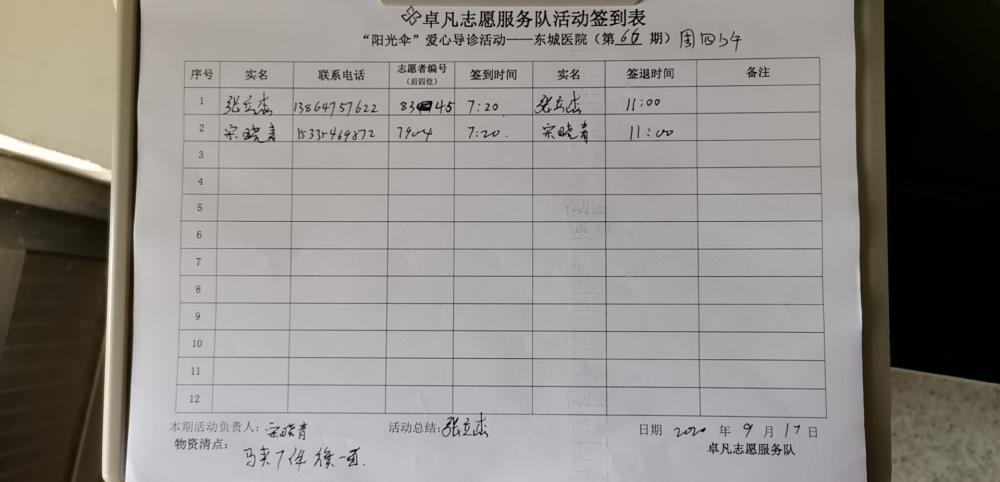 卓凡志愿服务队活动签到表
“阳光伞”爱心导诊活动——东城医院（第66期）周四上午
序号 实名 联系电话 志愿者编号（后四位） 签到时间 实名 签退时间 备注
1 张立杰 13864757622 8345 7:20 张立杰 11:00
2 宗晓青 15335469872 7904 7:20. 宗晓青 11:00
3
4
5
6
7
8
9
10
11
12
本期活动负责人：宗晓青 活动总结：张立杰 日期 2020 年 9 月 17 日
物资清点： 马夹7件 卓凡志愿服务队